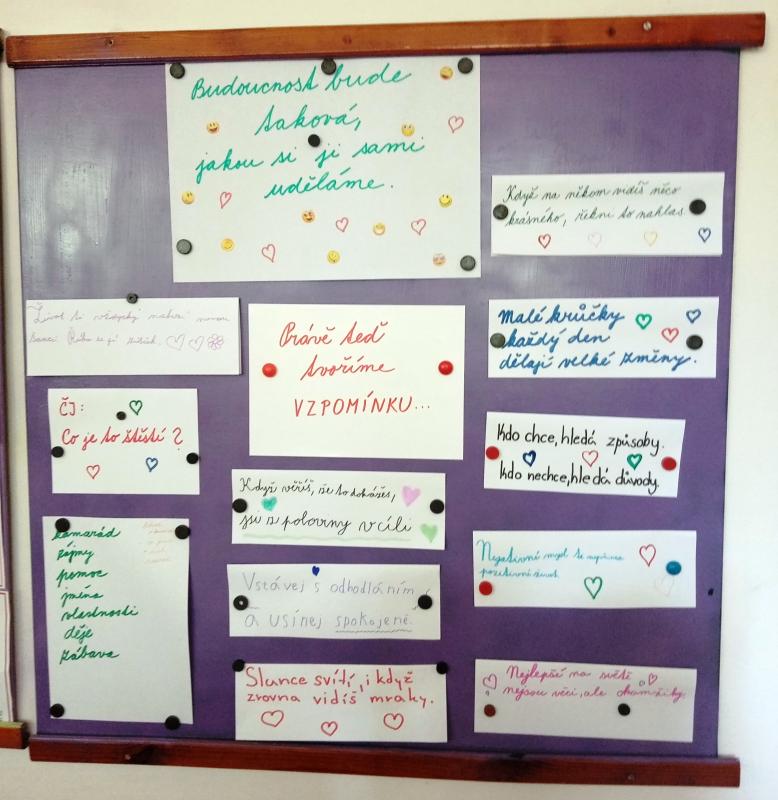 Budoucnost bude
taková,
jakou si ji sami
uděláme.
Když na někom vidíš něco
krásného, řekni to nahlas.
Život ti vždycky nabízí novou
šanci. Říká se jí zítřek.
Právě teď
tvoříme
VZPOMÍNKU...
Malé krůčky
každý den
dělají velké změny.
ČJ:
Co je to štěstí?
Kdo chce, hledá způsoby.
Kdo nechce, hledá důvody.
Když věříš, že to dokážeš,
jsi z poloviny v cíli
kamarád
zájmy
pomoc
jméno
vlastnosti
děje
zábava
Negativní mysl ti nepřinese
pozitivní život.
Vstávej s odhodláním
a usínej spokojeně.
Slunce svítí, i když
zrovna vidíš mraky.
Nejlepší na světě
nejsou věci, ale okamžiky.